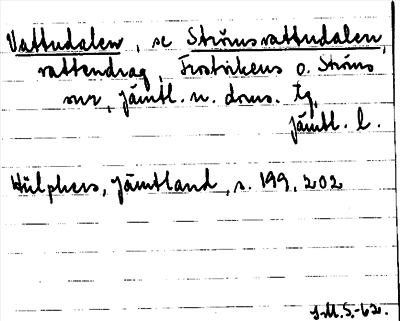 Vattudalen, se Ströms vattudalen,
vattendrag, Frostvikens o. Ströms
snr, Jämtl. n. doms. tg,
Jämtl. l.
Hülphers, Jämtland, s. 199, 202
S.M.S.-62.